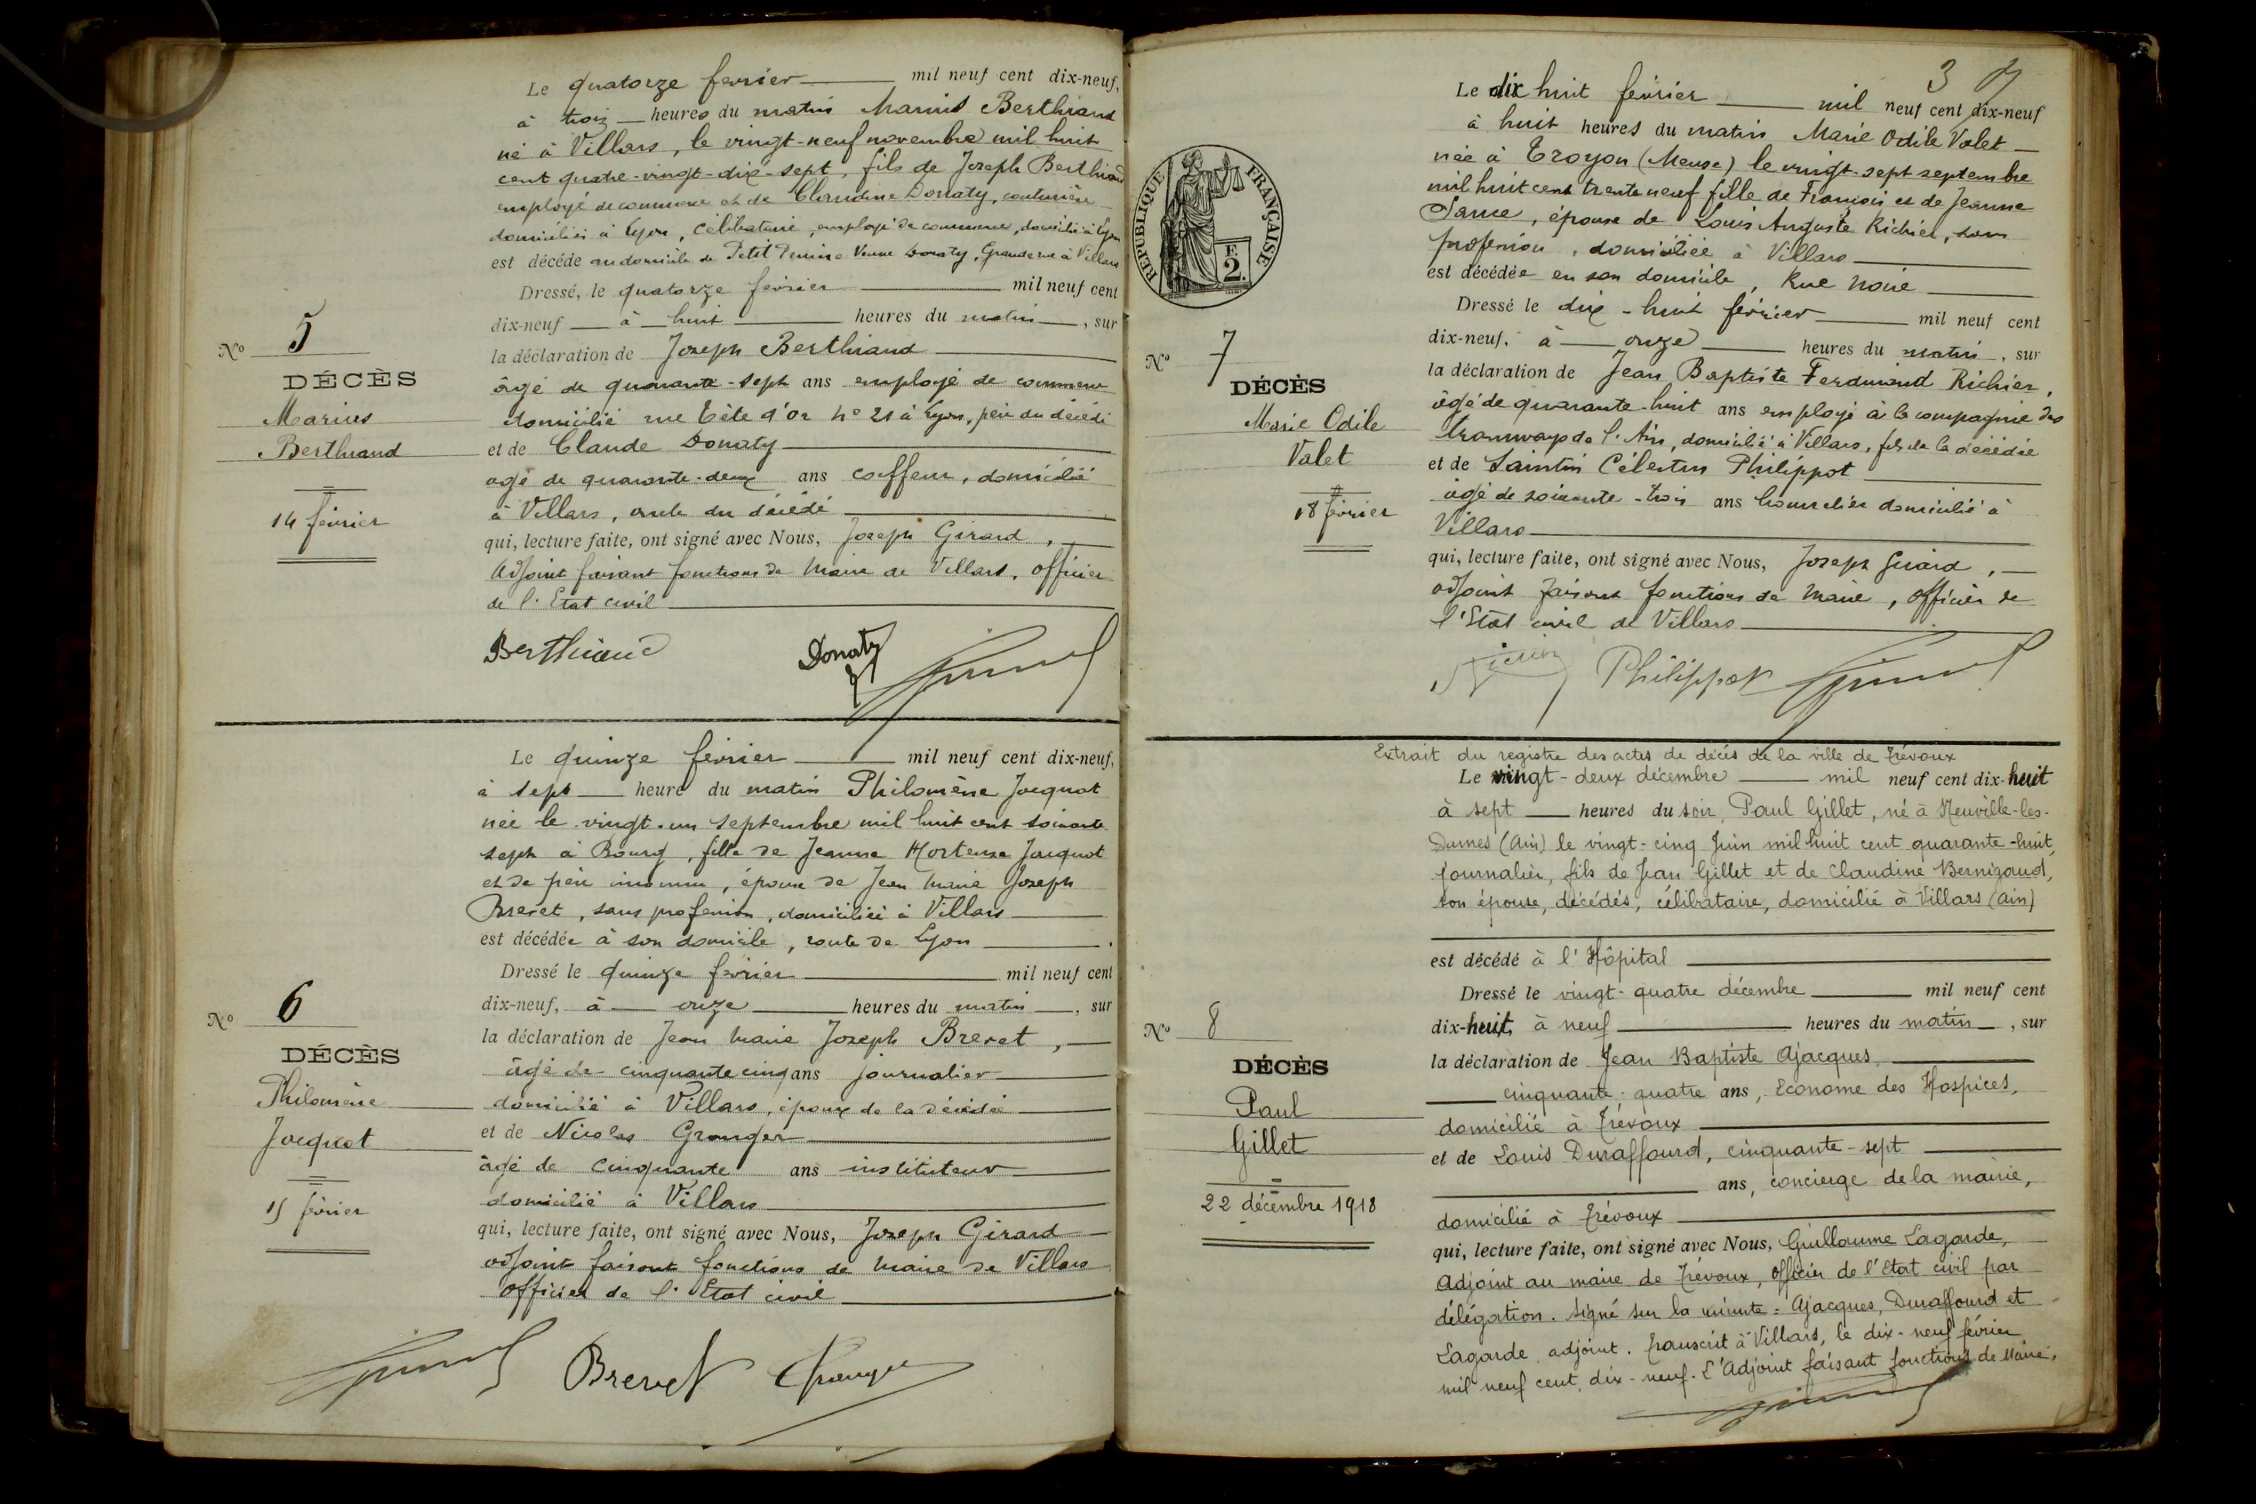 Le quatorze fevrier mil neuf cent dix-neuf,
à trois heures du matin Marius Berthiand
né à Villars, le vingt-neuf novembre mil huit
cent quatre-vingt-dix-sept, fils de Joseph Berthiand
employé de commerce et de Claudine Donaty, couturière
domiciliés à Lyon, célibataire, employé de commerce, domicilié à Lyon
est décédé au domicile de Petit Veuve Donaty, Grande rue à Villars
Dressé, le quatorze février mil neuf cent
dix-neuf à huit heures du matin, sur
la déclaration de Joseph Berthiand
âgé de quarante-sept ans employé de commerce
domicilié rue Tête d'or no 21 à Lyon, père du décédé
et de Claude Donaty
âgé de quarante-deux ans coiffeur, domicilié
à Villars, oncle du décédé
qui, lecture faite, ont signé avec Nous, Joseph Girard,
Adjoint faisant fonctions de Maire de Villars, officier
de l'Etat civil
Berthiand Donaty
No 5
DÉCÈS
Marius
Berthiand
14 février
Le quinze février mil neuf cent dix-neuf,
à sept heure du matin Philomène Jocquot
née le vingt-un septembre mil huit cent soixante
sept à Bourg, fille de Jeanne Hortense Jacquot
et de père inconnu, épouse de Jean Marie Joseph
Brevet, sans profession, domiciliée à Villars
est décédée à son domicile, route de Lyon
Dressé le quinze février mil neuf cent
dix-neuf, à onze heures du matin, sur
la déclaration de Jean Marie Joseph Brevet,
âgé de cinquante cinq ans journalier
domicilié à Villars, époux de la décédée
et de Nicolas Granger
âgé de cinquante ans instituteur
domicilié à Villars
qui, lecture faite, ont signé avec Nous, Joseph Girard
adjoint faisant fonctions de Maire de Villars
officier de l'Etat civil
Brevet Granger
No 6
DÉCÈS
Philomène
Jocquot
15 février
3
Le dix huit février mil neuf cent dix-neuf
à huit heures du matin Marie Odile Valet
née à Troyon (Meuse) le vingt-sept septembre
mil huit cent trente neuf fille de François et de Jeanne
épouse de Louis Auguste Richier, sans
profession, domiciliée à Villars
est décédée en son domicile, Rue Noire
Dressé le dix-huit février mil neuf cent
dix-neuf, à onze heures du matin, sur
la déclaration de Jean Baptiste Ferdinand Richier,
âgé de quarante-huit ans employé à la compagnie des
tramways de l'Ain, domicilié à Villars, fils de la décédée
et de Saintin Célestin Philippot
âgé de soixante-trois ans domicilié à
Villars
qui, lecture faite, ont signé avec Nous, Joseph Girard,
adjoint faisant fonctions de Maire, officier de
l'Etat civil de Villars
Philippot
RÉPUBLIQUE FRANÇAISE
F.
2.
No 7
DÉCÈS
Marie Odile
Valet
18 février
Extrait du registre des actes de décès de la ville de Trévoux
Le vingt-deux décembre mil neuf cent dix-huit
à sept heures du soir, Paul Gillet, né à Neuville-les-
Dames (Ain) le vingt-cinq Juin mil huit cent quarante-huit,
journalier, fils de Jean Gillet et de Claudine Bernigaud,
son épouse, décédés, célibataire, domicilié à Villars (Ain)
est décédé à l'Hôpital
Dressé le vingt-quatre décembre mil neuf cent
dix-huit, à neuf heures du matin, sur
la déclaration de Jean Baptiste Ajacques,
cinquante-quatre ans, Econome des Hospices,
domicilié à Trévoux
et de Louis Duraffourd, cinquante-sept
ans, concierge de la mairie,
domicilié à Trévoux
qui, lecture faite, ont signé avec Nous, Guillaume Lagarde,
Adjoint au maire de Trévoux, officier de l'Etat civil par
délégation. Signé sur la minute: Ajacques, Duraffourd et
Lagarde adjoint. Transcrit à Villars, le dix-neuf février
mil neuf cent dix-neuf. L'Adjoint faisant fonctions de Maire,
No 8
DÉCÈS
Paul
Gillet
22 décembre 1918